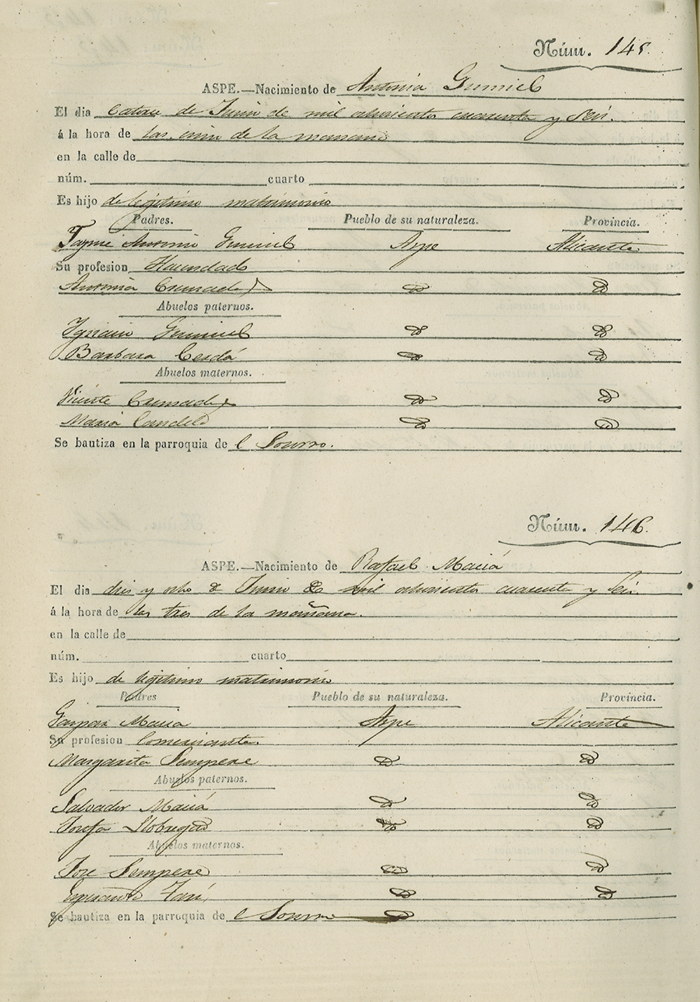 Núm. 145.
ASPE.—Nacimiento de Antonia Gumiel
El dia Catorce de Junio de mil ochocientos cuarenta y seis.
á la hora de las cinco de la manana
en la calle de
núm. cuarto
Es hijo de legitimo matrimonio
Padres. Pueblo de su naturaleza. Provincia.
Jayme Antonio Gumiel Aspe Alicante
Su profesion Hacendado
Antonia Cremades
Abuelos paternos.
Ignacio Gumiel
Barbara Cerdá
Abuelos maternos.
Vicente Cremades
Maria Candela
Se bautiza en la parroquia de el Socorro.
Núm. 146.
ASPE.—Nacimiento de Rafael Maciá
El dia dies y ocho de Junio de mil ochocientos cuarenta y seis
á la hora de las tres de la mañana.
en la calle de
núm. cuarto
Es hijo de legitimo matrimonio
Padres Pueblo de su naturaleza. Provincia.
Gaspar Macia Aspe Alicante
Su profesion Comerciante
Margarita Sempere
Abuelos paternos.
Salvador Maciá
Josefa Llobregad
Abuelos maternos.
Jose Sempere
Se bautiza en la parroquia de el Socorro